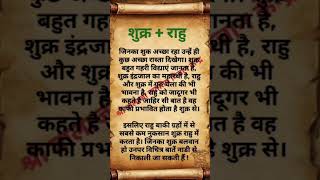 शुक्र + राहु
जिनका शुक्र अच्छा रहा उन्हें ही
कुछ अच्छा रास्ता दिखेगा। शुक्र
बहुत गहरी विद्याएं जानता है,
शुक्र इंद्रजाल का महारथी है, राहु
और शुक्र में गुरु चेला की भी
भावना है, राहु को जादूगर भी
कहते है जाहिर सी बात है वह
काफी प्रभावित होता है शुक्र से।
इसलिए राहु बाकी ग्रहों में से
सबसे कम नुकसान शुक्र राहु में
करता है। जिनका शुक्र बलवान
हो उनपर विचित्र बातें नाडी से
निकाली जा सकती हैं।